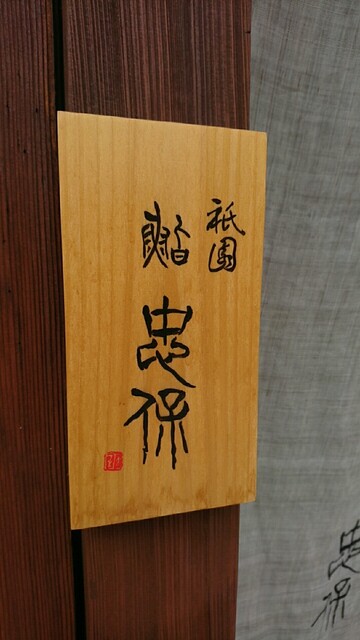 祇園
鮨
忠保
忠保